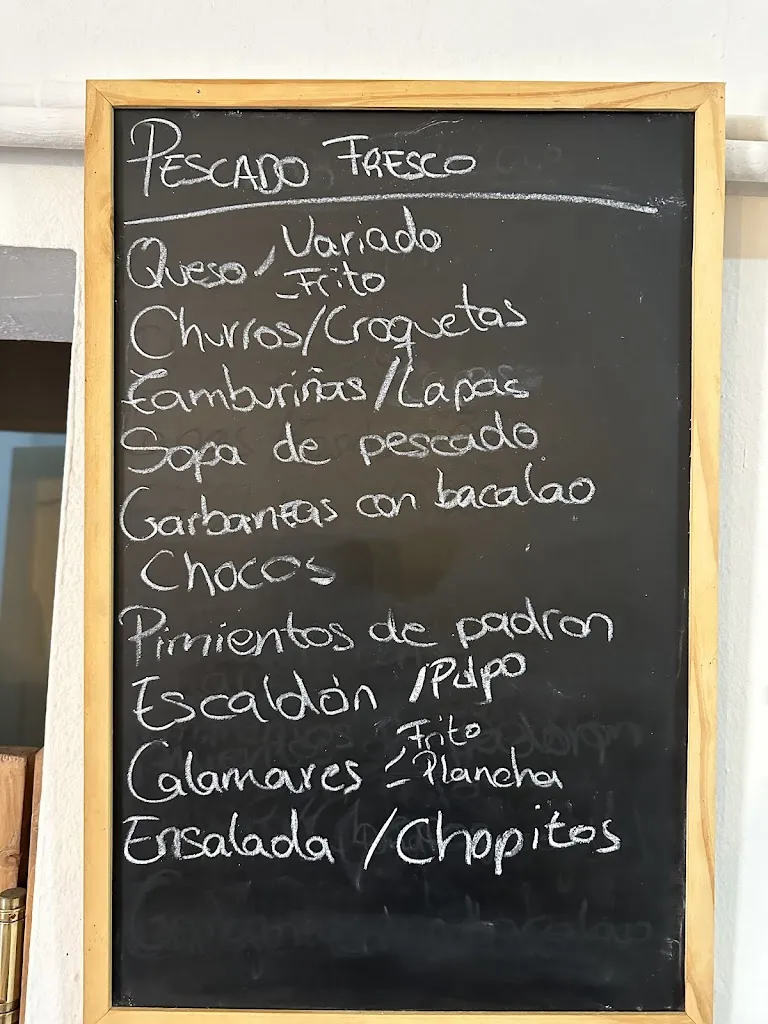 PESCADO FRESCO
Queso - Variado
- Frito
Churros/Croquetas
Zamburiñas/Lapas
Sopa de pescado
Garbanzas con bacalao
Chocos
Pimientos de padron
Escaldón /Pulpo
Calamares - Frito
- Plancha
Ensalada /Chopitos